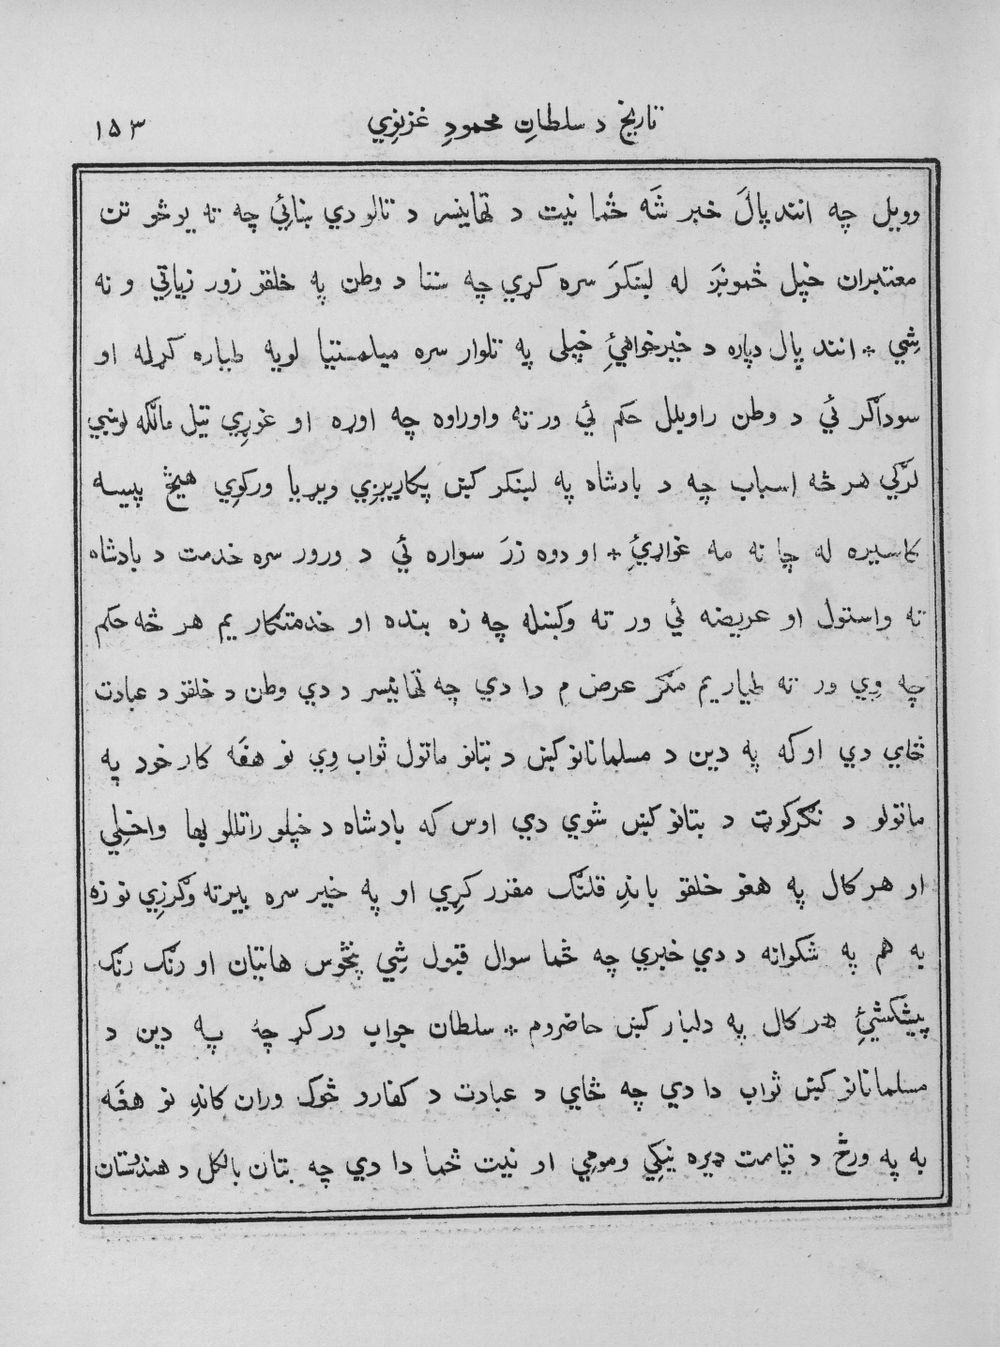 تاریخ د سلطانِ محمودِ غزنوِي ۱۵۳
وویل چه انندپالَ خبر شَه څما نیت د تهانیسر د تالو دي ښائِي چه ته یو څو تن
معتبران خپل څمونږَ له لښکرَ سره کړي چه ستا د وطن په خلقو زور زیاتِي و نه
شِي * انند پال دپاره د خیرخواهئِ خپلی په تلوار سره میلمستیا لویه طیاره کړله او
سوداګر ئي د وطن راوبلل حکم ئي ورته واوراوه چه اوړه او غوړِي تیل مالګه لوښي
لرګي هر څه اسباب چه د بادشاه په لښکر کښ پکاریږي ویړیا ورکوِي هیڅ پیسه
کاسیره له چا نه مه غواړئِ * او دوه زرَ سواره ئي د ورور سره خدمت د بادشاه
ته واستول او عریضه ئي ور ته وکښله چه زه بنده او خدمتګار یم هر څه حکم
چه وِي ور ته طیار یم مګر عرض م دا دي چه تهانیسر د دي وطن د خلقو د عبادت
ځاي دي او که په دین د مسلمانانو کښ د بتانو ماتول ثواب وِي نو هغَه کار خود په
ماتولو د نګرکوټ د بتانو کښ شوي دي اوس که بادشاه د خپلو راتللو بها واخلِي
او هر کال په هغو خلقو باندِ قلنګ مقرر کړِي او په خیر سره بیرته وګرزِي نو زه
به هم په شکرانه د دي خبري چه څما سوال قبول شِي پنځوس هاتیان او رنګ رنګ
پیشکشئِ هر کال په دلبار کښ حاضروم * سلطان جواب ورکړ چه په دین د
مسلمانانو کښ ثواب دا دي چه ځاي د عبادت د کفارو څوک وران کاندِ نو هغَه
به په ورځ د قیامت ډیره نیکِي ومومِي او نیت څما دا دي چه بتان بالکل د هندُستان